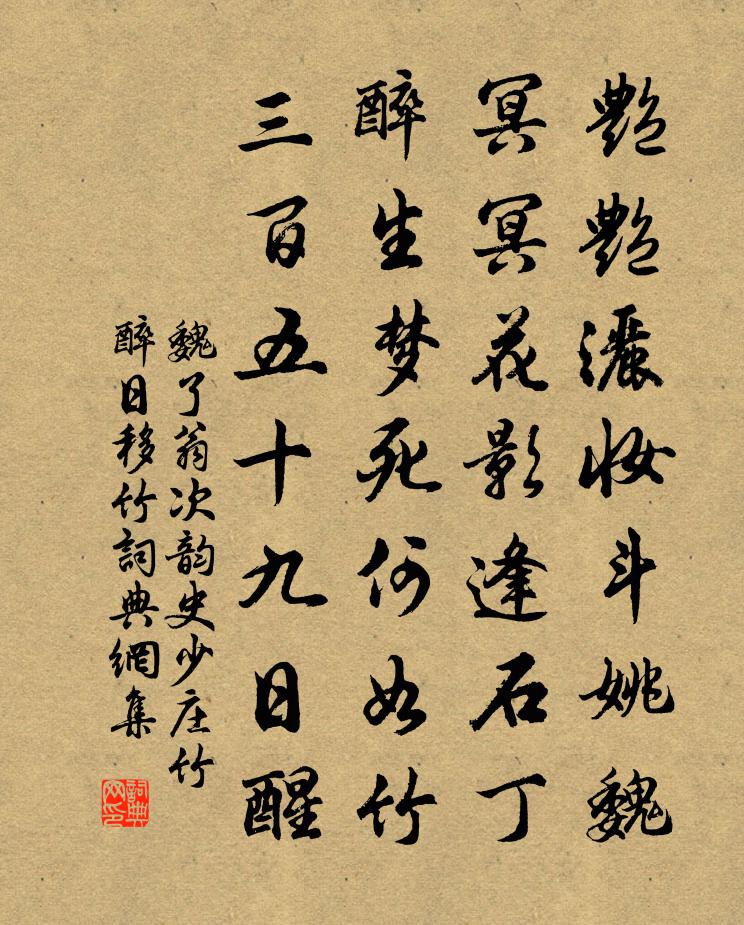 艷艷濃妝斗姚魏
冥冥花影逢石丁
醉生梦死何如竹
三百五十九日醒
魏了翁次韵史少庄竹
醉日移竹詞典網集
詞典网印